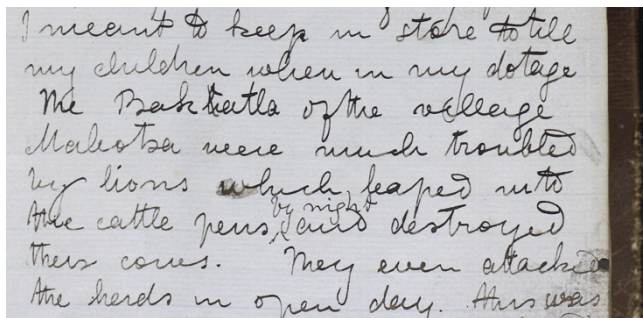 I meant to keep in store to tell
my children when in my dotage
The Bakhatla of the village
Mabotsa were much troubled
by lions which leaped into
by night
the cattle pens, and destroyed
their cows. They even attacked
the herds in open day. This was